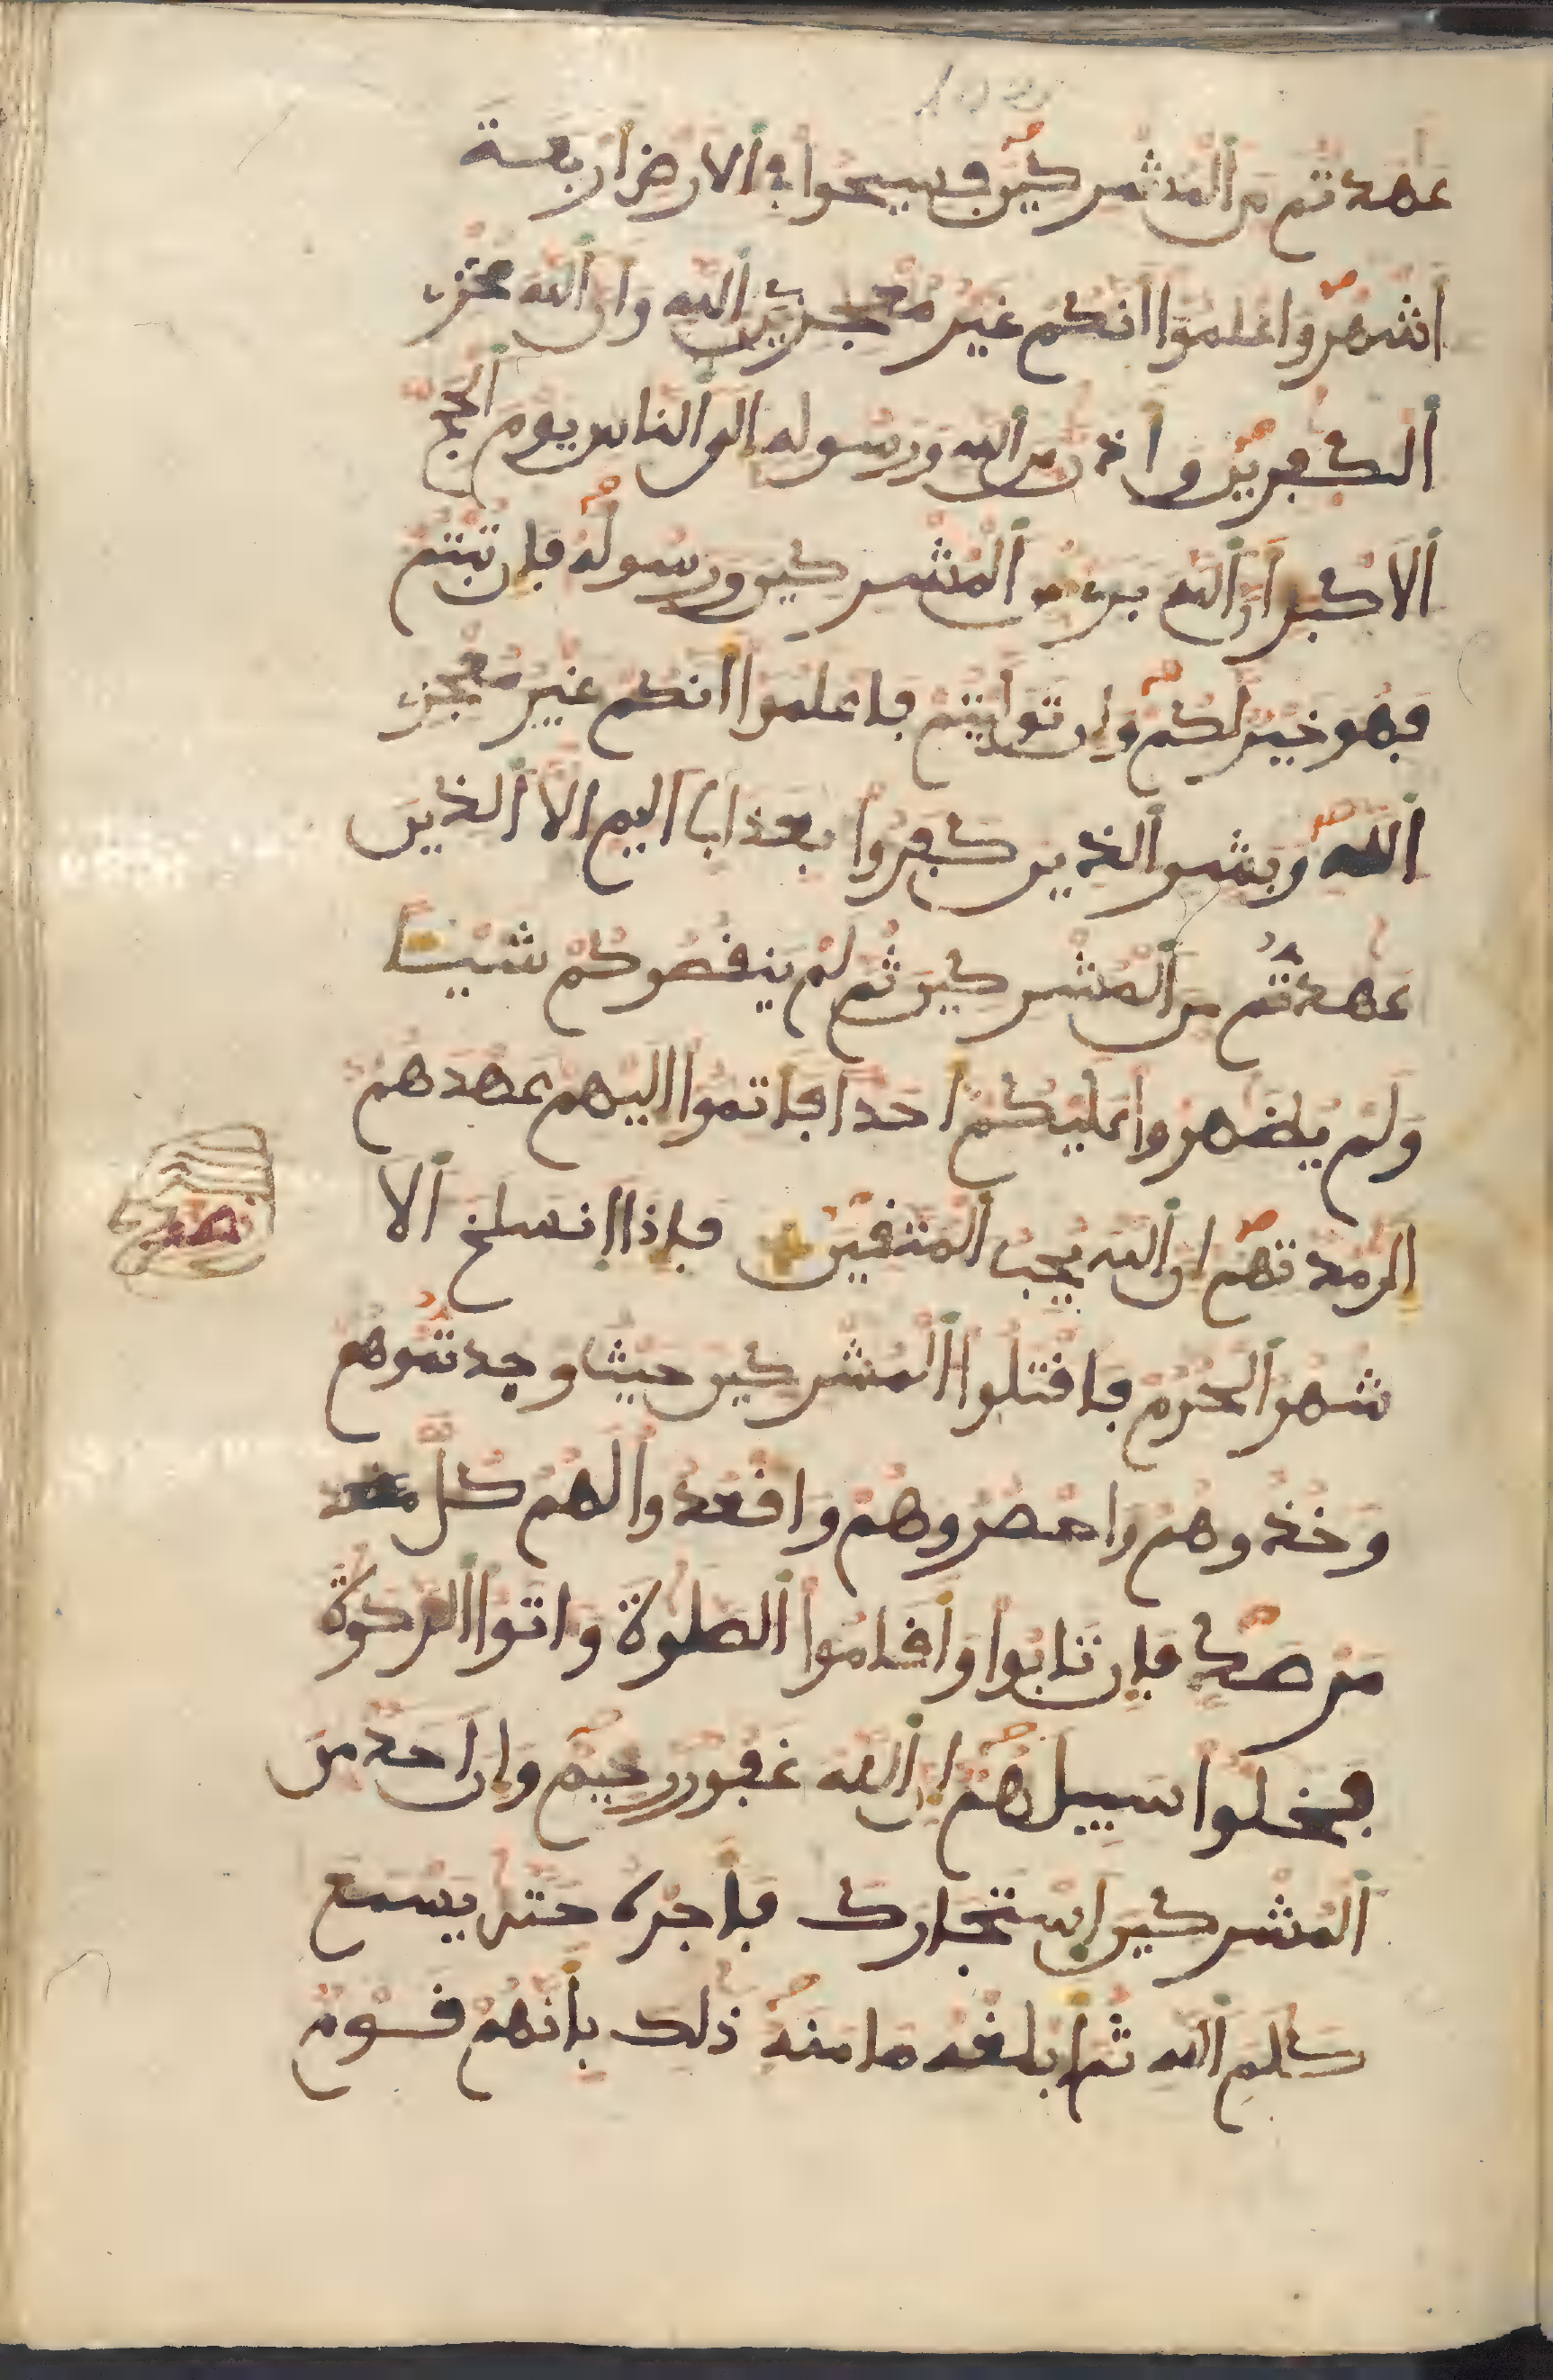 عهدتم من المشركين فسيحوا في الارض اربعة
اشهر واعلموا انكم غير معجزين الله وان الله مخزي
الكفرين واذن من الله ورسوله الى الناس يوم الحج
الاكبر ان الله بريء من المشركين ورسوله فإن تبتم
فهو خير لكم وإن توليتم فاعلموا انكم غير معجزي
الله وبشر الذين كفروا بعذاب اليم الا الذين
عهدتم من المشركين ثم لم ينقصوكم شيئا
ولم يظهروا عليكم احدا فاتموا اليهم عهدهم
الى مدتهم ان الله يحب المتقين فإذا انسلخ الا
شهر الحرم فاقتلوا المشركين حيث وجدتموهم
وخذوهم واحصروهم واقعدوا لهم كل مقعد
مرصد فإن تابوا وأقاموا الصلوة واتوا الزكوة
فخلوا سبيلهم ان الله غفور رحيم وإن احد من
المشركين استجارك فأجره حتى يسمع
كلم الله ثم أبلغه مامنه ذلك بأنهم قوم